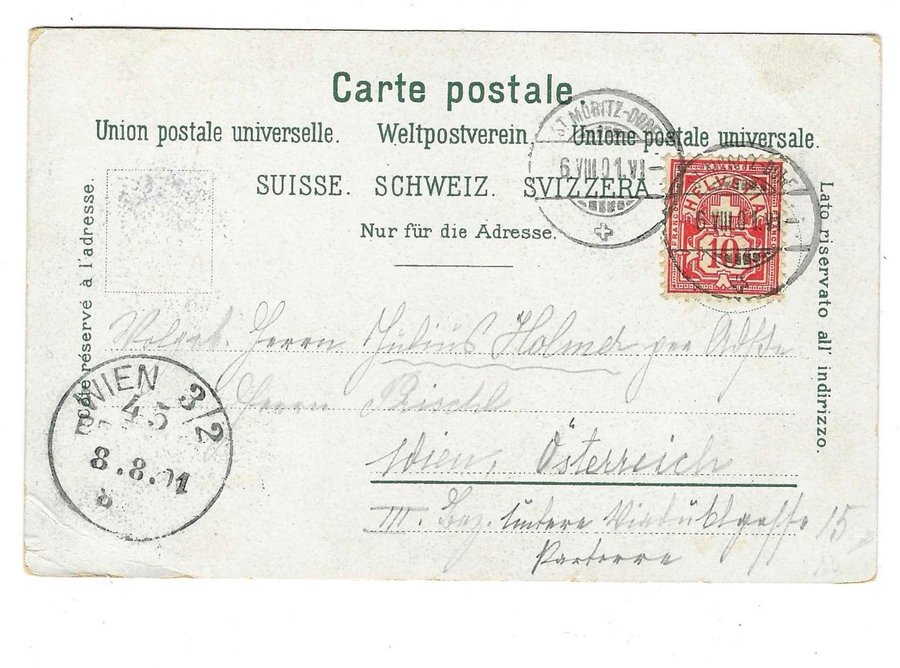 Carte postale.
Union postale universelle. Weltpostverein. Unione postale universale.
SUISSE. SCHWEIZ. SVIZZERA
Nur für die Adresse.
Côté réservé à l'adresse.
Lato riservato all' indirizzo.
ST. MORITZ-
6.VIII.01.VI-
HELVETIA
FRANCO
10
6.VIII.01.VI-
Herrn Julius Holmer per Adße
Herrn
Wien, Österreich
III. Bez. Untere Viaduktgasse 15
Parterre
WIEN 3/2
45
8.8.01
8